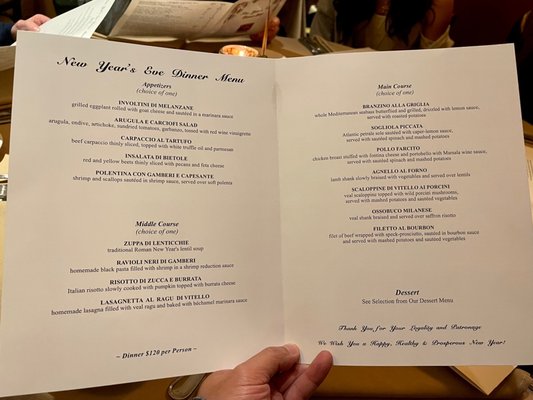 New Year's Eve Dinner Menu
Appetizers
(choice of one)
INVOLTINI DI MELANZANE
grilled eggplant rolled with goat cheese and sautéed in a marinara sauce
ARUGULA E CARCIOFI SALAD
arugula, endive, artichoke, sundried tomatoes, garbanzo, tossed with red wine vinaigrette
CARPACCIO AL TARTUFO
beef carpaccio thinly sliced, topped with white truffle oil and parmesan
INSALATA DI BIETOLE
red and yellow beets thinly sliced with pecans and feta cheese
POLENTINA CON GAMBERI E CAPESANTE
shrimp and scallops sautéed in shrimp sauce, served over soft polenta
Middle Course
(choice of one)
ZUPPA DI LENTICCHIE
traditional Roman New Year's lentil soup
RAVIOLI NERI DI GAMBERI
homemade black pasta filled with shrimp in a shrimp reduction sauce
RISOTTO DI ZUCCA E BURRATA
Italian risotto slowly cooked with pumpkin topped with burrata cheese
LASAGNETTA AL RAGU DI VITELLO
homemade lasagna filled with veal ragu and baked with béchamel marinara sauce
~ Dinner $120 per Person ~
Main Course
(choice of one)
BRANZINO ALLA GRIGLIA
whole Mediterranean seabass butterflied and grilled, drizzled with lemon sauce,
served with roasted potatoes
SOGLIOLA PICCATA
Atlantic petrale sole sautéed with caper-lemon sauce,
served with sautéed spinach and mashed potatoes
POLLO FARCITO
chicken breast stuffed with fontina cheese and portobello with Marsala wine sauce,
served with sautéed spinach and mashed potatoes
AGNELLO AL FORNO
lamb shank slowly braised with vegetables and served over lentils
SCALOPPINE DI VITELLO AI PORCINI
veal scaloppine topped with wild porcini mushrooms,
served with mashed potatoes and sautéed vegetables
OSSOBUCO MILANESE
veal shank braised and served over saffron risotto
FILETTO AL BOURBON
filet of beef wrapped with speck-prosciutto, sautéed in bourbon sauce
and served with mashed potatoes and sautéed vegetables
Dessert
See Selection from Our Dessert Menu
Thank You for Your Loyality and Patronage
We Wish You a Happy, Healthy & Prosperous New Year!